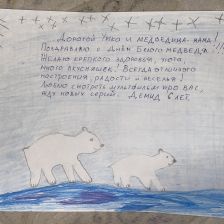 Дорогой Умко и медведица-мама!
Поздравляю с Днём белого медведя!!!
Желаю крепкого здоровья, уюта,
много вкусняшек! Всегда отличного
настроения, радости и веселья!
Люблю смотреть мультфильм про вас,
жду новых серий. Демид 6 лет.